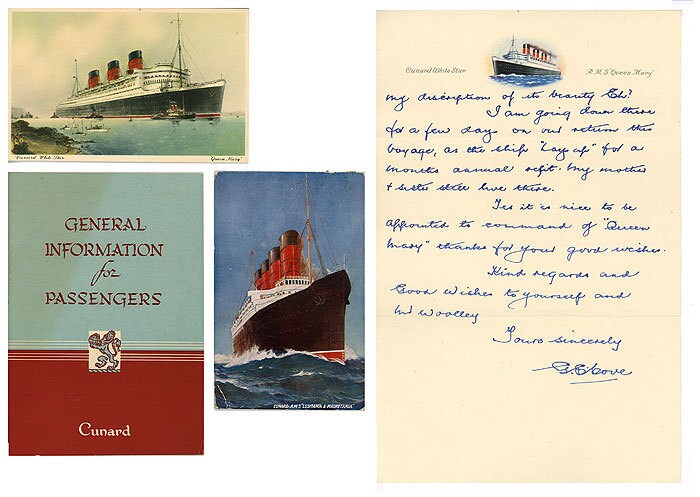 "Cunard White Star
"Queen Mary"
GENERAL
INFORMATION
for
PASSENGERS
Cunard
CUNARD. R.M.S. "LUSITANIA & MAURETANIA"
Cunard White Star
R.M.S "Queen Mary"
my discription of its beauty Eh?
I am going down there
for a few days on our return this
voyage, as the ship "Lays up" for a
months annual refit. My mother
& sister still live there.
Yes it is nice to be
appointed to command of "Queen
Mary" thanks for your good wishes.
Kind regards and
Good Wishes to yourself and
Mr Woolley
Yours sincerely